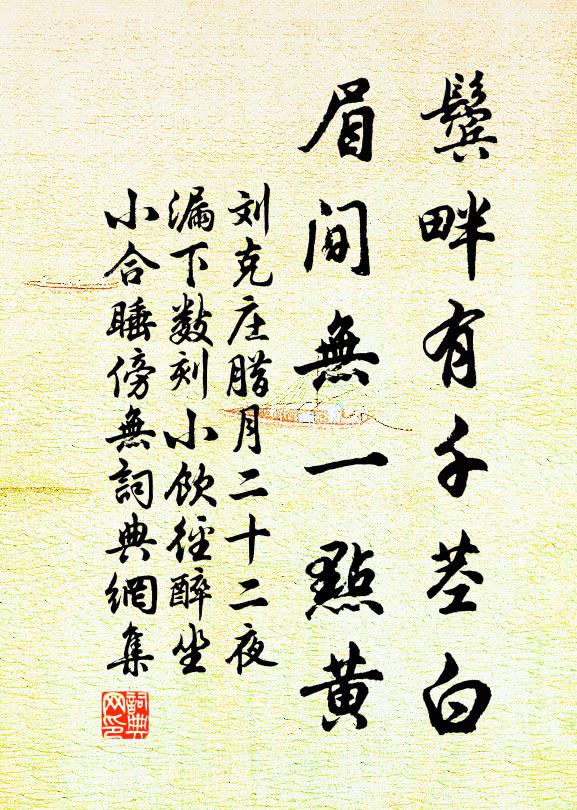 鬓畔有千茎白
眉间無一點黄
刘克庄腊月二十二夜
漏下数刻小飲径醉坐
小合睡傍無詞典網集
詞典網印